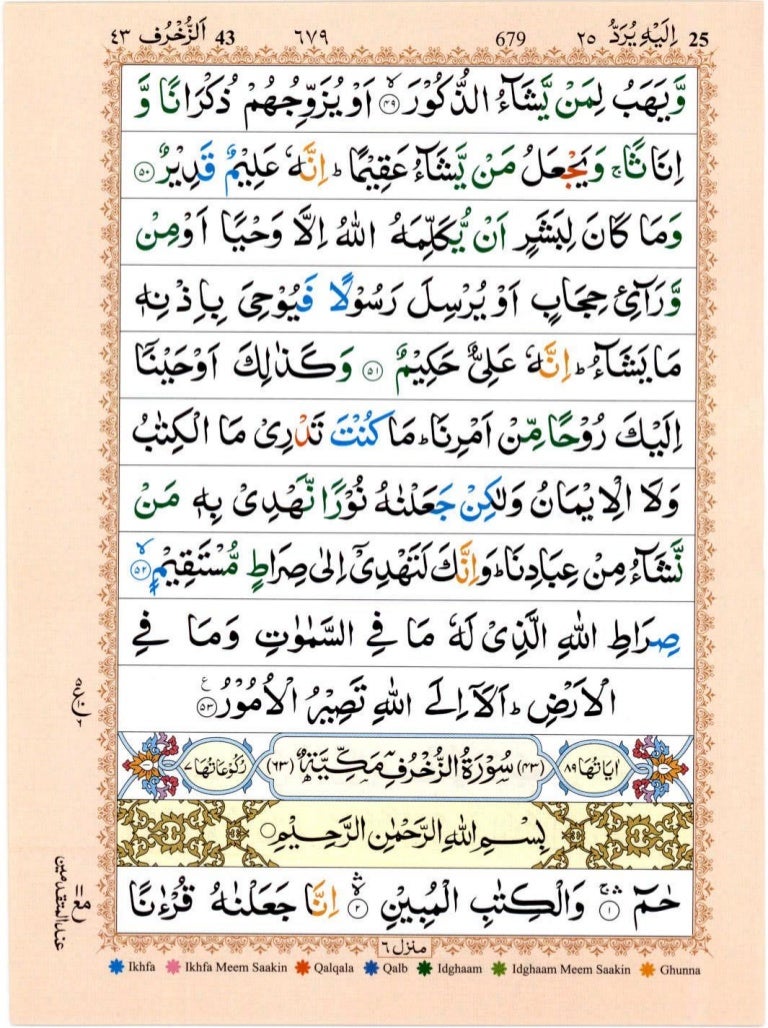 اِلَیْهِ یُرَدُّ ٢٥ 25
679
٦٧٩
اَلزُّخْرُف ٤٣ 43
وَّیَهَبُ لِمَنْ یَّشَآءُ الذُّکُوْرَ ۙ﴿۴۹﴾ اَوْ یُزَوِّجُهُمْ ذُکْرَانًا وَّ
اِنَاثًا ۚ وَیَجْعَلُ مَنْ یَّشَآءُ عَقِیْمًا ؕ اِنَّهٗ عَلِیْمٌ قَدِیْرٌ ﴿۵۰﴾
وَمَا کَانَ لِبَشَرٍ اَنْ یُّکَلِّمَهُ اللّٰهُ اِلَّا وَحْیًا اَوْ مِنْ
وَّرَآئِ حِجَابٍ اَوْ یُرْسِلَ رَسُوْلًا فَیُوْحِیَ بِاِذْنِهٖ
مَا یَشَآءُ ؕ اِنَّهٗ عَلِیٌّ حَکِیْمٌ ﴿۵۱﴾ وَکَذٰلِكَ اَوْحَیْنَاۤ
اِلَیْكَ رُوْحًا مِّنْ اَمْرِنَا ؕ مَا کُنْتَ تَدْرِیْ مَا الْکِتٰبُ
وَلَا الْاِیْمَانُ وَلٰکِنْ جَعَلْنٰهُ نُوْرًا نَّهْدِیْ بِهٖ مَنْ
نَّشَآءُ مِنْ عِبَادِنَا ؕ وَاِنَّكَ لَتَهْدِیْۤ اِلٰی صِرَاطٍ مُّسْتَقِیْمٍ ۙ﴿۵۲﴾
صِرَاطِ اللّٰهِ الَّذِیْ لَهٗ مَا فِی السَّمٰوٰتِ وَمَا فِی
الْاَرْضِ ؕ اَلَاۤ اِلَی اللّٰهِ تَصِیْرُ الْاُمُوْرُ ﴿۵۳﴾
اٰیَاتُهَا ٨٩ (٤٣) سُوْرَةُ الزُّخْرُفِ مَکِّیَّةٌ (٦٣) رُکُوْعَاتُهَا ٧
بِسْمِ اللّٰهِ الرَّحْمٰنِ الرَّحِیْمِ
حٰمٓ ۚ﴿۱﴾ وَالْکِتٰبِ الْمُبِیْنِ ﴿۲﴾ اِنَّا جَعَلْنٰهُ قُرْءٰنًا
عند المتقدمین
منزل ٦
Ikhfa Ikhfa Meem Saakin Qalqala Qalb Idghaam Idghaam Meem Saakin Ghunna